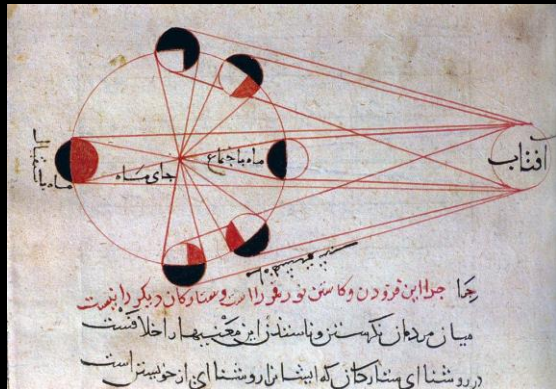 افتاب
ماه باجتماع
جای ماه
ماه باستقبال
چرا این فزودن وکاستن نور قمر را است وستارکان دیکر را نیست
میان مردمان این معنیها اختلافست
در روشنا ای ستارکان که ایشانرا روشنا ای از خویشتن است